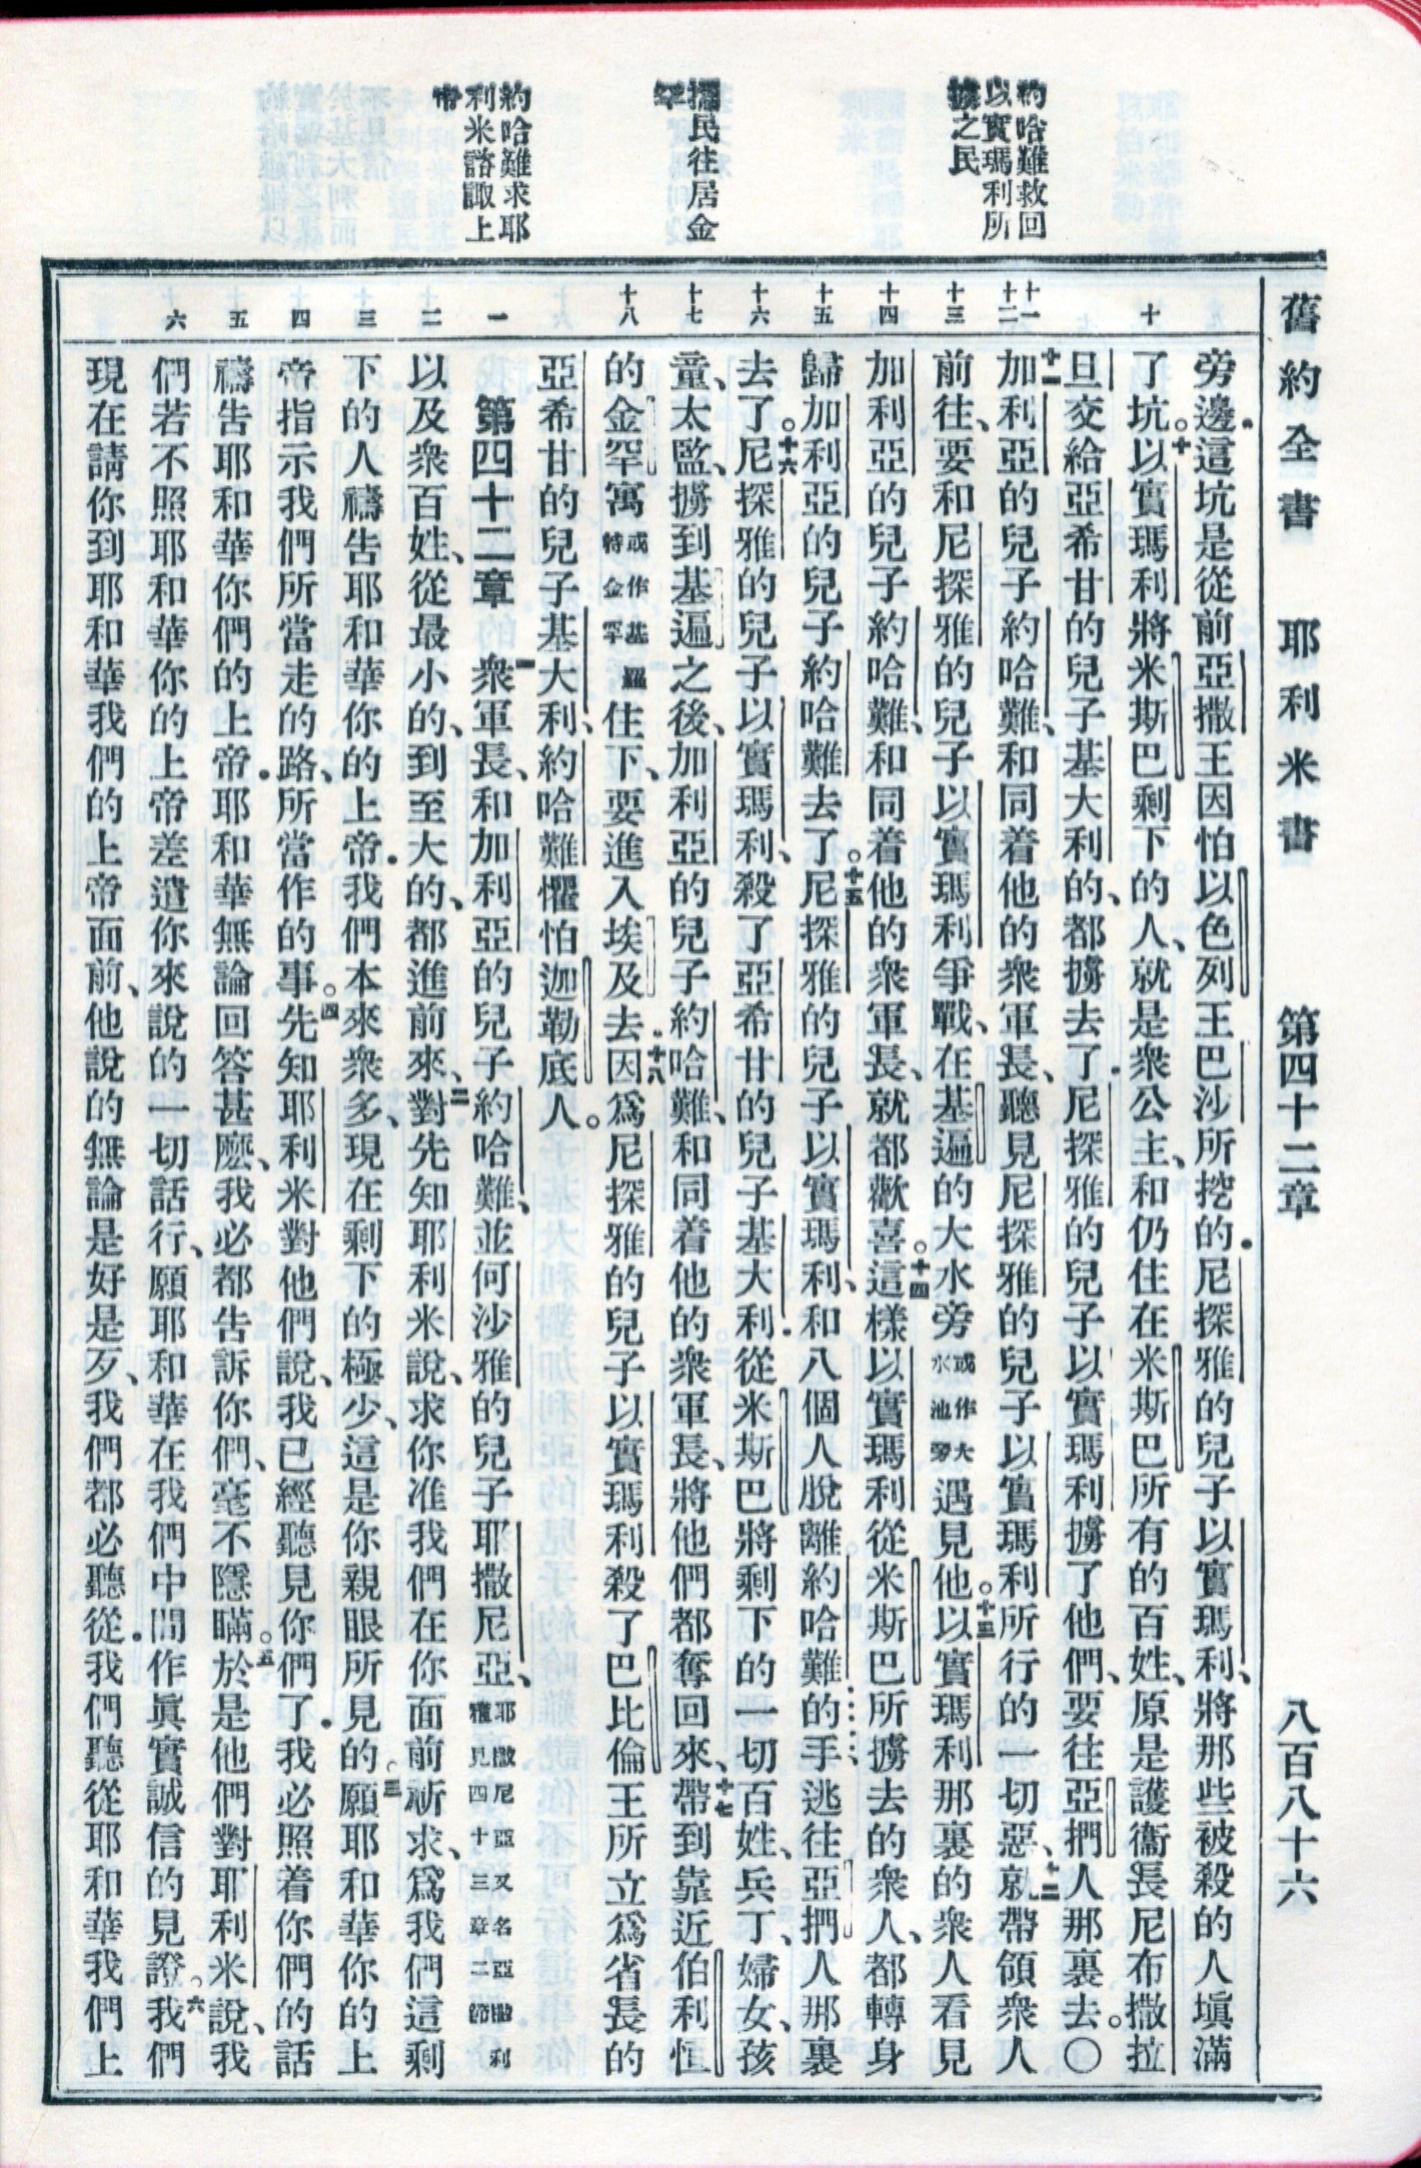 舊約全書 耶利米書 第四十二章 八百八十六
約哈難救回
以實瑪利所
擄之民
攜民往居金
罕
約哈難求耶
利米諮諏上
帝
十
十一
十二
十三
十四
十五
十六
十七
十八
一
二
三
四
五
六
旁邊.這坑是從前亞撒王因怕以色列王巴沙所挖的.尼探雅的兒子以實瑪利、將那些被殺的人塡滿
了坑。十以實瑪利將米斯巴剩下的人、就是衆公主、和仍住在米斯巴所有的百姓、原是護衞長尼布撒拉
旦交給亞希甘的兒子基大利的、都擄去了.尼探雅的兒子以實瑪利擄了他們、要往亞捫人那裏去。〇
十一加利亞的兒子約哈難、和同着他的衆軍長、聽見尼探雅的兒子以實瑪利所行的一切惡、十二就帶領衆人
前往、要和尼探雅的兒子以實瑪利爭戰、在基遍的大水旁或作大水池旁遇見他。十三以實瑪利那裏的衆人看見
加利亞的兒子約哈難、和同着他的衆軍長、就都歡喜。十四這樣以實瑪利從米斯巴所擄去的衆人、都轉身
歸加利亞的兒子約哈難去了。十五尼探雅的兒子以實瑪利、和八個人脫離約哈難的手、逃往亞捫人那裏
去了。十六尼探雅的兒子以實瑪利、殺了亞希甘的兒子基大利.從米斯巴將剩下的一切百姓、兵丁、婦女、孩
童、太監、擄到基遍之後、加利亞的兒子約哈難、和同着他的衆軍長、將他們都奪回來、十七帶到靠近伯利恒
的金罕寓或作基羅特金罕住下、要進入埃及去.十八因爲尼探雅的兒子以實瑪利殺了巴比倫王所立爲省長的
亞希甘的兒子基大利、約哈難懼怕迦勒底人。
第四十二章 一衆軍長、和加利亞的兒子約哈難、並何沙雅的兒子耶撒尼亞、耶撒尼亞又名亞撒利雅見四十三章二節
以及衆百姓、從最小的、到至大的、都進前來、二對先知耶利米說、求你准我們在你面前祈求、爲我們這剩
下的人禱告耶和華你的上帝.我們本來衆多、現在剩下的極少、這是你親眼所見的。三願耶和華你的上
帝指示我們所當走的路、所當作的事。四先知耶利米對他們說、我已經聽見你們了.我必照着你們的話
禱告耶和華你們的上帝.耶和華無論回答甚麽、我必都告訴你們、毫不隱瞞。五於是他們對耶利米說、我
們若不照耶和華你的上帝差遣你來說的一切話行、願耶和華在我們中間作眞實誠信的見證。六我們
現在請你到耶和華我們的上帝面前、他說的無論是好是歹、我們都必聽從.我們聽從耶和華我們上